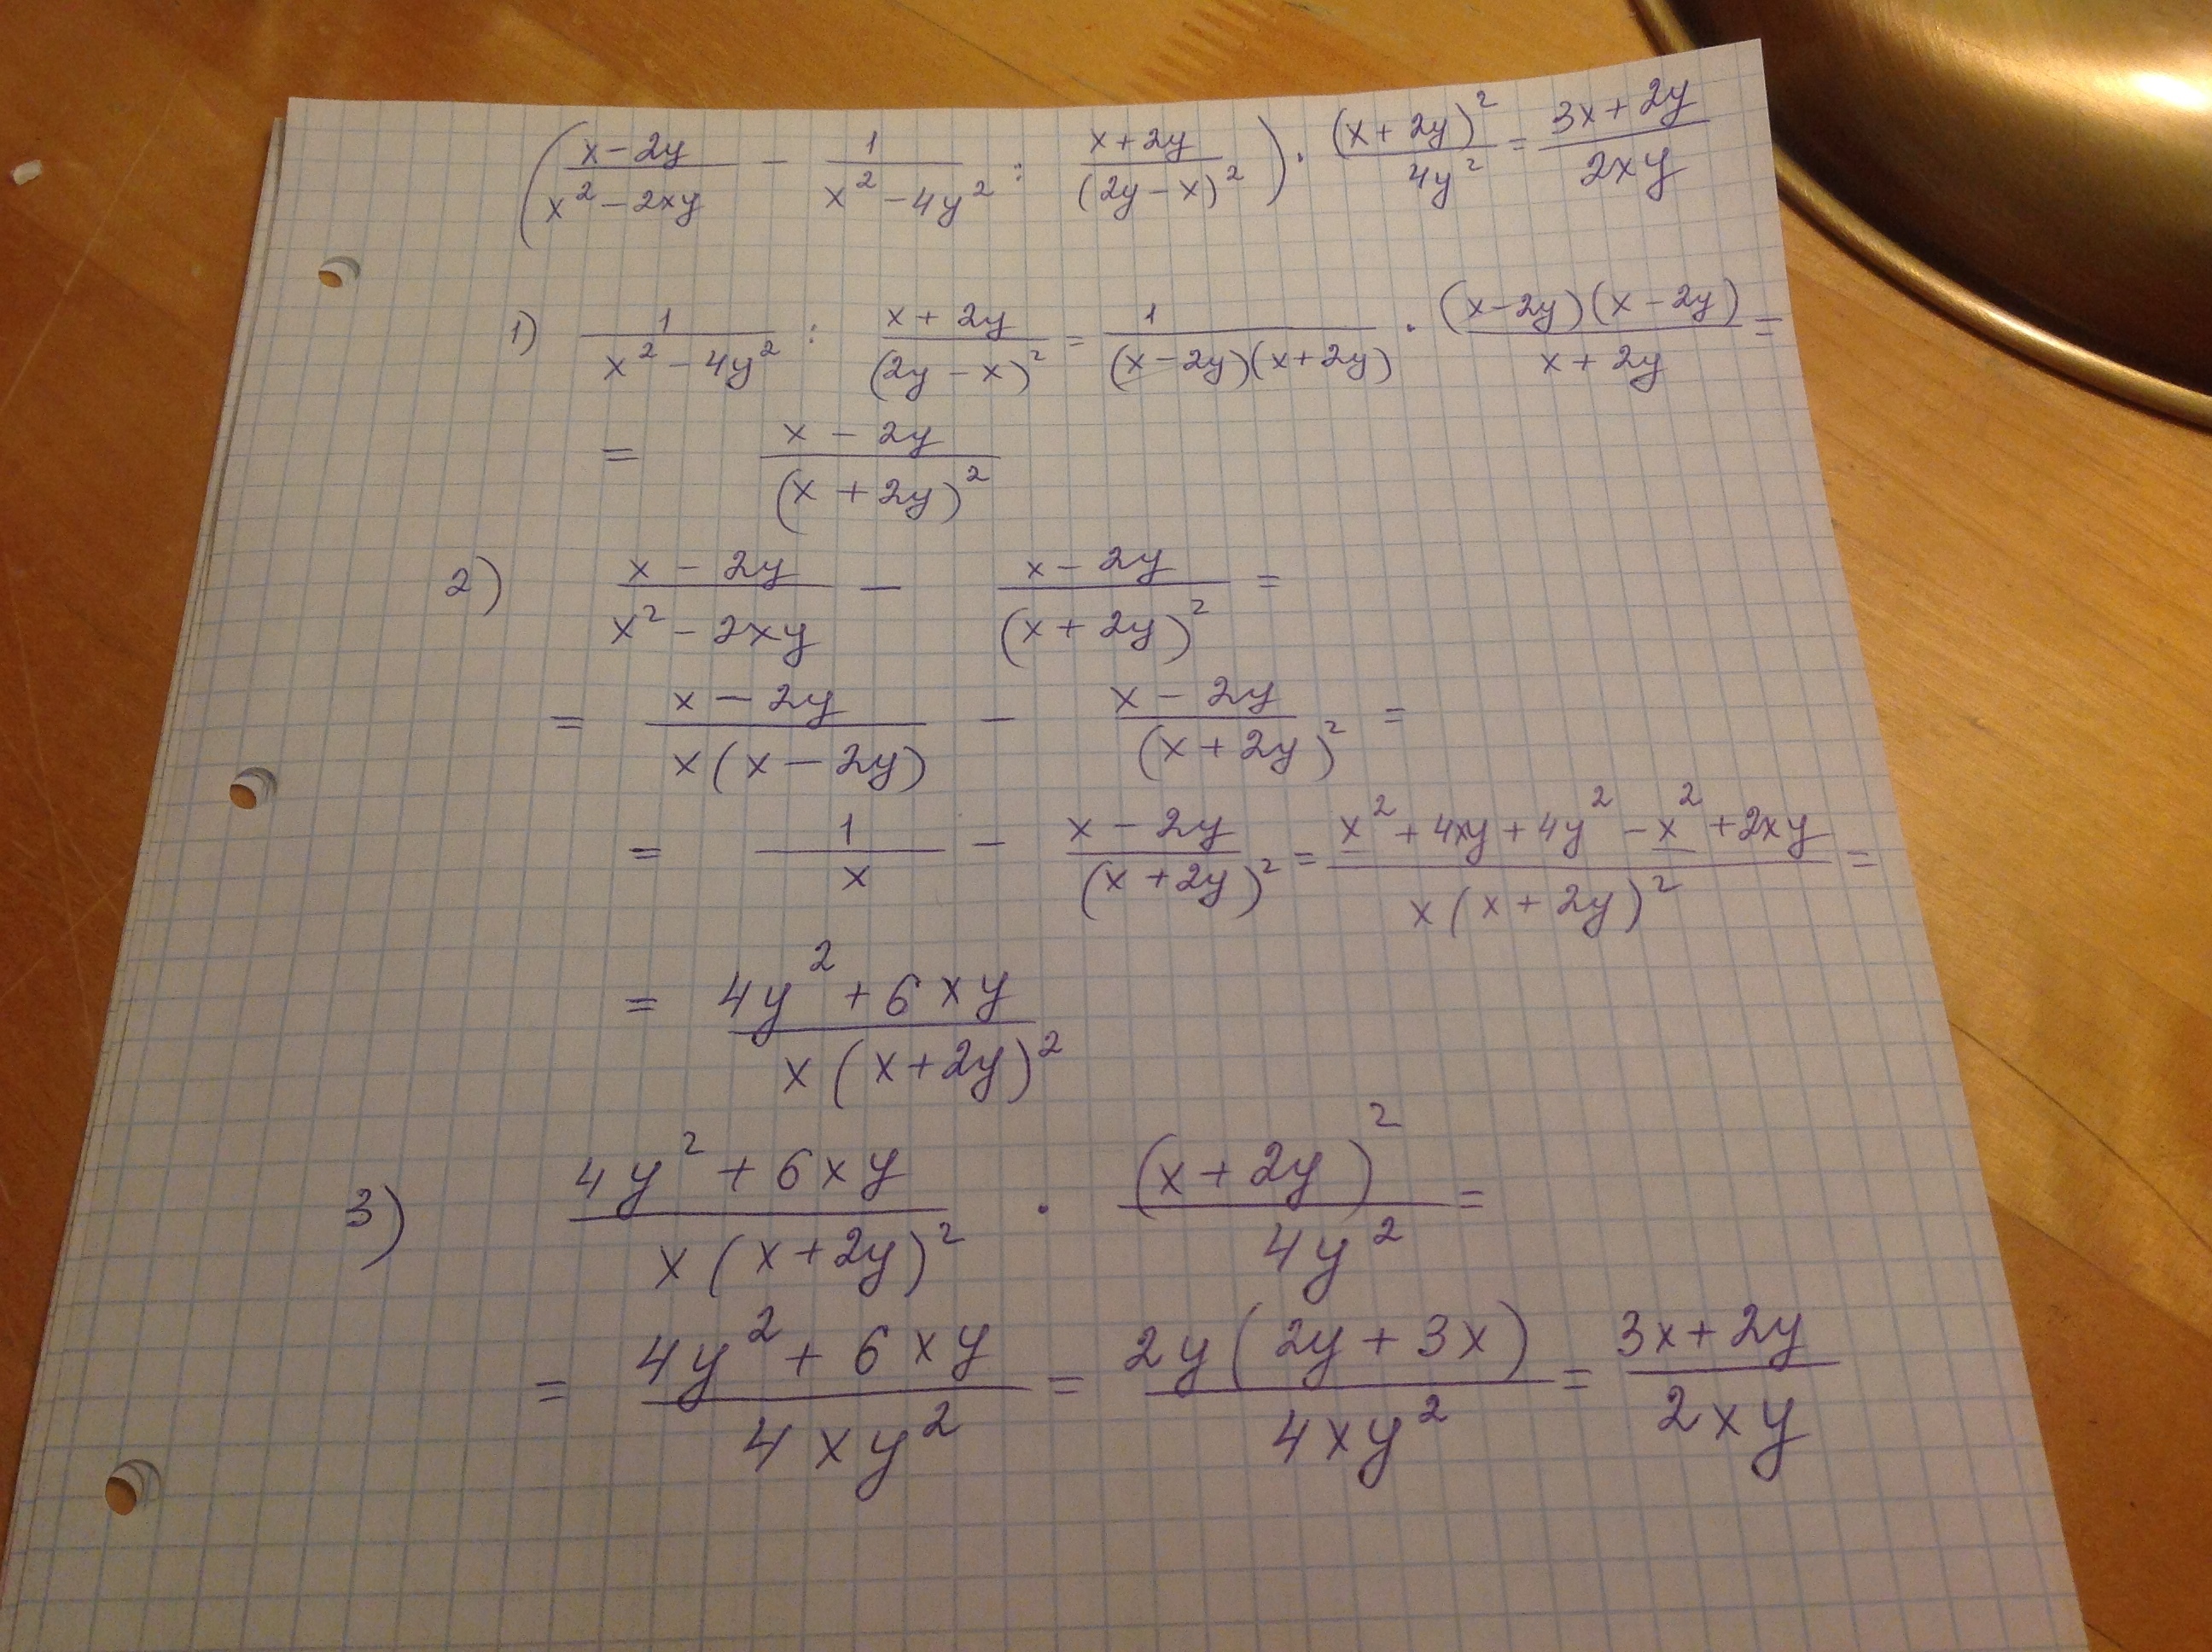 (x-2y/x²-2xy - 1/x²-4y² : x+2y/(2y-x)²) · (x+2y)²/4y² = 3x+2y/2xy
1) 1/x²-4y² : x+2y/(2y-x)² = 1/(x-2y)(x+2y) · (x-2y)(x-2y)/x+2y =
= x-2y/(x+2y)²
2) x-2y/x²-2xy - x-2y/(x+2y)² =
= x-2y/x(x-2y) - x-2y/(x+2y)² =
= 1/x - x-2y/(x+2y)² = x²+4xy+4y²-x²+2xy/x(x+2y)² =
= 4y²+6xy/x(x+2y)²
3) 4y²+6xy/x(x+2y)² · (x+2y)²/4y² =
= 4y²+6xy/4xy² = 2y(2y+3x)/4xy² = 3x+2y/2xy